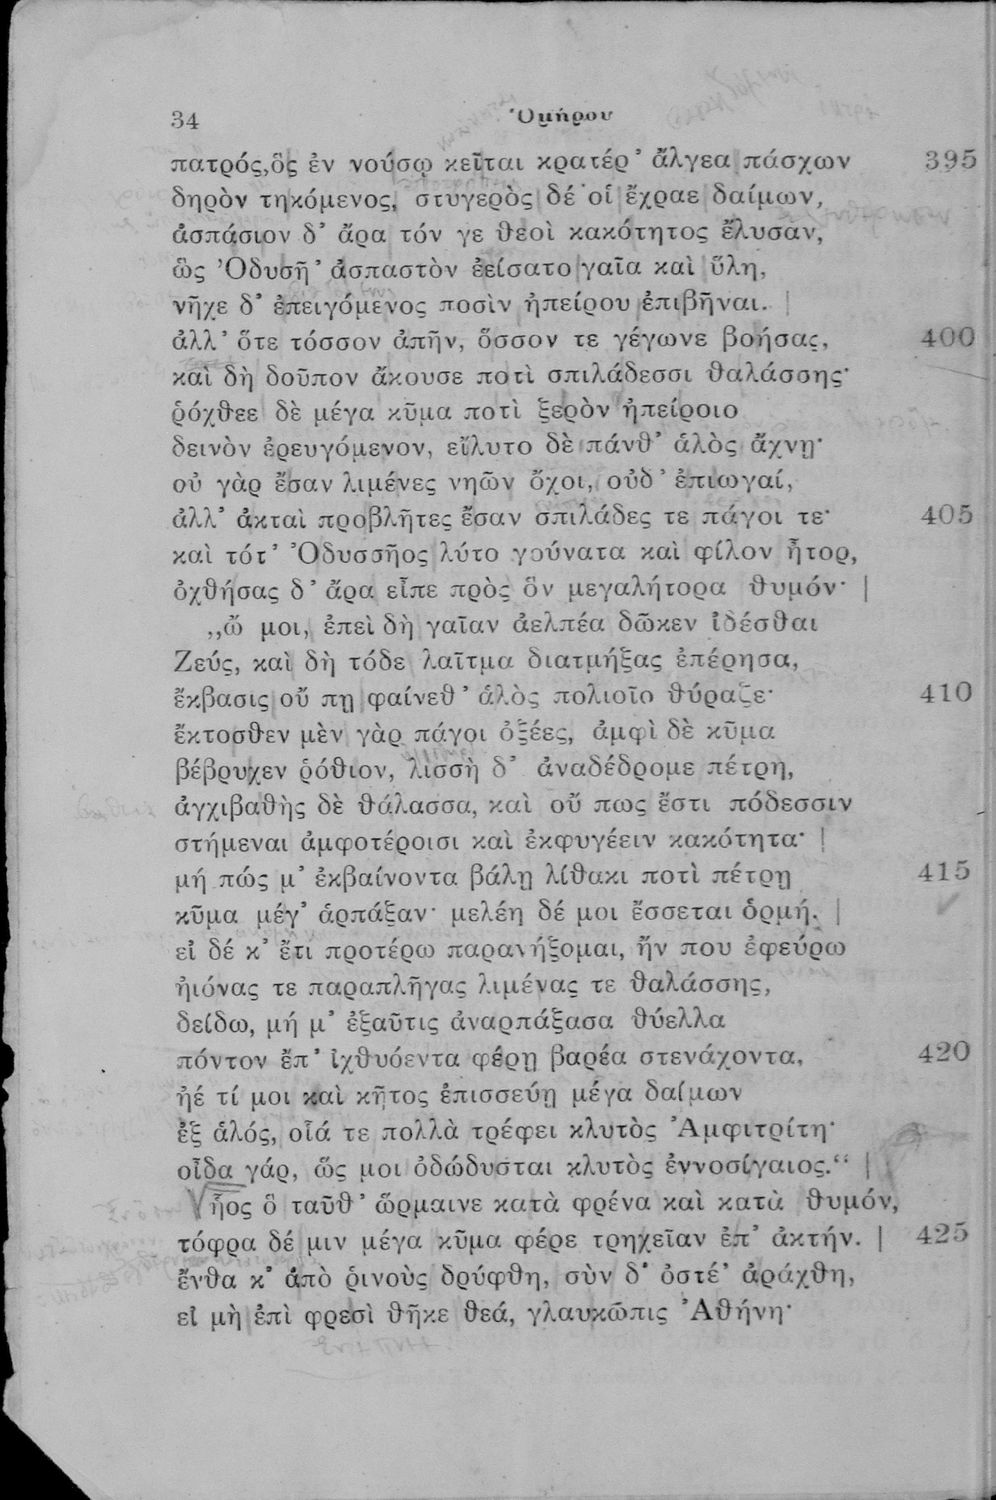 34
Ὁμήρου
πατρός, ὃς ἐν νούσῳ κεῖται κρατέρ᾽ ἄλγεα πάσχων 395
δηρὸν τηκόμενος, στυγερὸς δέ οἱ ἔχραε δαίμων,
ἀσπάσιον δ᾽ ἄρα τόν γε θεοὶ κακότητος ἔλυσαν,
ὣς Ὀδυσῆ᾽ ἀσπαστὸν ἐείσατο γαῖα καὶ ὕλη,
νῆχε δ᾽ ἐπειγόμενος ποσὶν ἠπείρου ἐπιβῆναι.
ἀλλ᾽ ὅτε τόσσον ἀπῆν, ὅσσον τε γέγωνε βοήσας, 400
καὶ δὴ δοῦπον ἄκουσε ποτὶ σπιλάδεσσι θαλάσσης·
ῥόχθεε δὲ μέγα κῦμα ποτὶ ξερὸν ἠπείροιο
δεινὸν ἐρευγόμενον, εἴλυτο δὲ πάνθ᾽ ἁλὸς ἄχνῃ·
οὐ γὰρ ἔσαν λιμένες νηῶν ὄχοι, οὐδ᾽ ἐπιωγαί,
ἀλλ᾽ ἀκταὶ προβλῆτες ἔσαν σπιλάδες τε πάγοι τε· 405
καὶ τότ᾽ Ὀδυσσῆος λύτο γούνατα καὶ φίλον ἦτορ,
ὀχθήσας δ᾽ ἄρα εἶπε πρὸς ὃν μεγαλήτορα θυμόν·
„ὤ μοι, ἐπεὶ δὴ γαῖαν ἀελπέα δῶκεν ἰδέσθαι
Ζεύς, καὶ δὴ τόδε λαῖτμα διατμήξας ἐπέρησα,
ἔκβασις οὔ πῃ φαίνεθ᾽ ἁλὸς πολιοῖο θύραζε· 410
ἔκτοσθεν μὲν γὰρ πάγοι ὀξέες, ἀμφὶ δὲ κῦμα
βέβρυχεν ῥόθιον, λισσὴ δ᾽ ἀναδέδρομε πέτρη,
ἀγχιβαθὴς δὲ θάλασσα, καὶ οὔ πως ἔστι πόδεσσιν
στήμεναι ἀμφοτέροισι καὶ ἐκφυγέειν κακότητα·
μή πώς μ᾽ ἐκβαίνοντα βάλῃ λίθακι ποτὶ πέτρῃ 415
κῦμα μέγ᾽ ἁρπάξαν· μελέη δέ μοι ἔσσεται ὁρμή.
εἰ δέ κ᾽ ἔτι προτέρω παρανήξομαι, ἤν που ἐφεύρω
ἠιόνας τε παραπλῆγας λιμένας τε θαλάσσης,
δείδω, μή μ᾽ ἐξαῦτις ἀναρπάξασα θύελλα
πόντον ἔπ᾽ ἰχθυόεντα φέρῃ βαρέα στενάχοντα, 420
ἠέ τί μοι καὶ κῆτος ἐπισσεύῃ μέγα δαίμων
ἐξ ἁλός, οἷά τε πολλὰ τρέφει κλυτὸς Ἀμφιτρίτη·
οἶδα γάρ, ὥς μοι ὀδώδυσται κλυτὸς ἐννοσίγαιος.“
ἧος ὃ ταῦθ᾽ ὥρμαινε κατὰ φρένα καὶ κατὰ θυμόν,
τόφρα δέ μιν μέγα κῦμα φέρε τρηχεῖαν ἐπ᾽ ἀκτήν. 425
ἔνθα κ᾽ ἀπὸ ῥινοὺς δρύφθη, σὺν δ᾽ ὀστέ᾽ ἀράχθη,
εἰ μὴ ἐπὶ φρεσὶ θῆκε θεά, γλαυκῶπις Ἀθήνη·